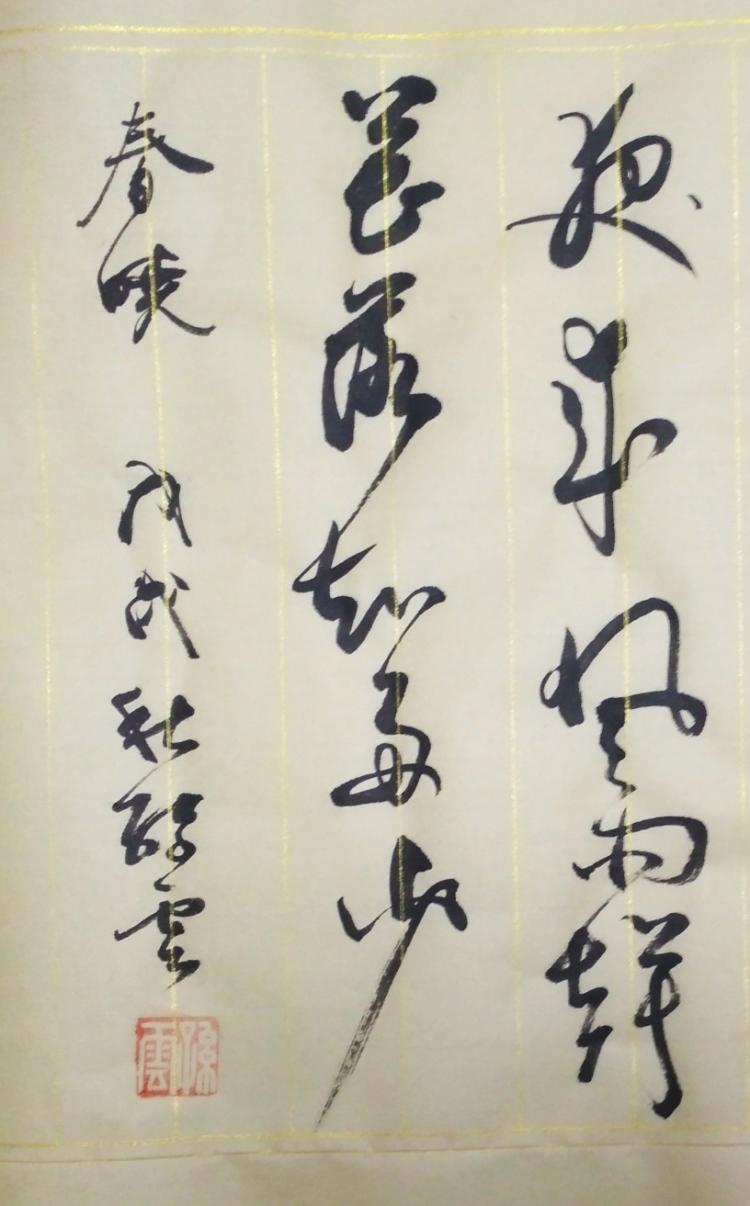 夜来风雨声
花落知多少
春晓 戊戌秋醉云
孫雲